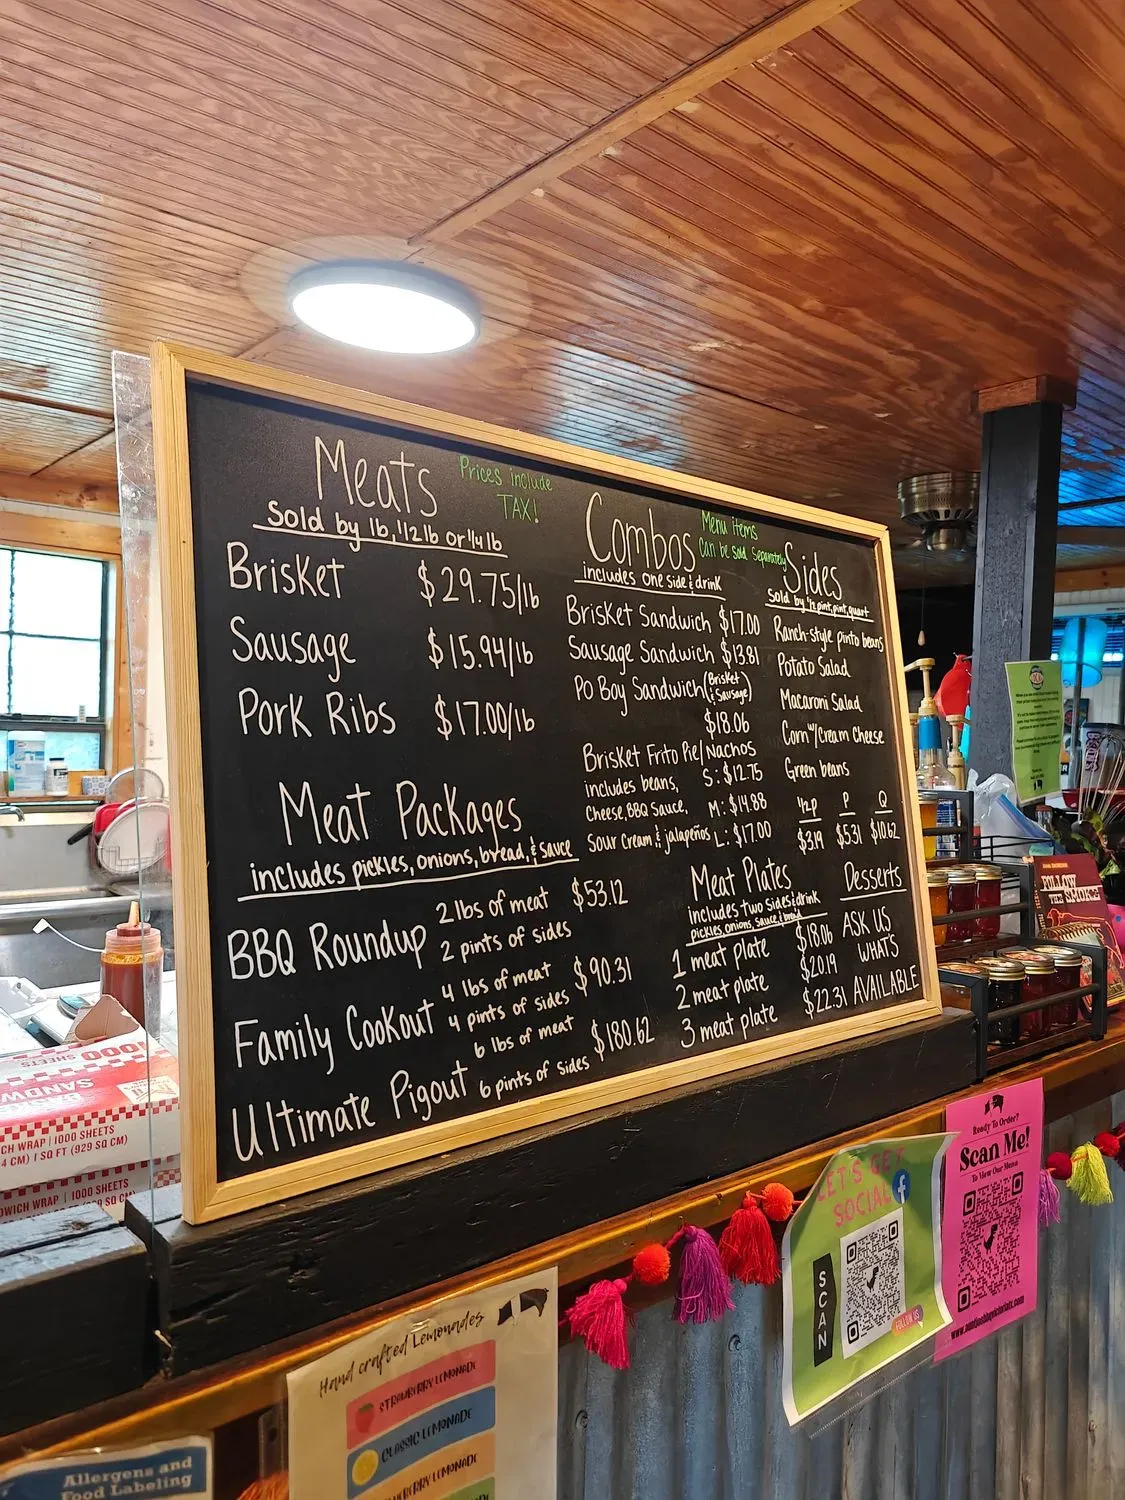 Meats
Prices include
TAX!
Sold by lb, 1/2 lb or 1/4 lb
Brisket $29.75/lb
Sausage $15.94/lb
Pork Ribs $17.00/lb
Meat Packages
includes pickles, onions, bread, & sauce
BBQ Roundup 2 lbs of meat $53.12
2 pints of sides
Family Cookout 4 lbs of meat $90.31
4 pints of sides
Ultimate Pigout 6 lbs of meat $180.62
6 pints of sides
Combos
Menu items
Can be sold separately
includes one side & drink
Brisket Sandwich $17.00
Sausage Sandwich $13.81
Po Boy Sandwich (Brisket
& Sausage)
$18.06
Brisket Frito Pie/Nachos
includes beans, S: $12.75
Cheese, BBQ Sauce, M: $14.88
Sour Cream & jalapeños L: $17.00
Meat Plates
Includes two sides & drink
pickles, onions, sauce & bread
1 meat plate $18.06
2 meat plate $20.19
3 meat plate $22.31
Sides
Sold by 1/2 pint, pint, quart
Ranch-style pinto beans
Potato Salad
Macaroni Salad
Corn w/cream Cheese
Green beans
1/2 P P Q
$3.19 $5.31 $10.62
Desserts
ASK US
WHAT'S
AVAILABLE
FOLLOW
THE SMOKE
1000 SHEETS
SANDW
CH WRAP | 1000 SHEETS
4 CM) 1 SQ FT (929 SQ CM)
DWICH WRAP | 1000 SHEETS
Hand crafted Lemonades
STRAWBERRY LEMONADE
CLASSIC LEMONADE
LEMONADE
Allergens and
Food Labeling
LET'S GET
SOCIAL
f
SCAN
FOLLOW US
Ready To Order?
Scan Me!
To View Our Menu